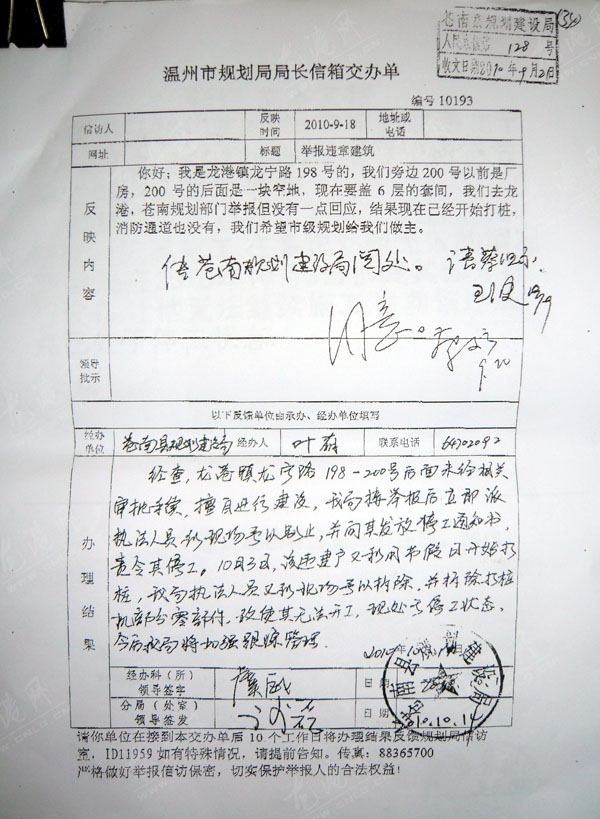 苍南县规划建设局
128 号
收文日期2010年9月21日
温州市规划局局长信箱交办单
编号 10193
信访人 反映时间 2010-9-18 地址或电话
网址 标题 举报违章建筑
反映内容
你好；我是龙港镇龙宁路 198 号的，我们旁边 200 号以前是厂
房，200 号的后面是一块窄地，现在要盖 6 层的套间，我们去龙
港，苍南规划部门举报但没有一点回应，结果现在己经开始打桩，
消防通道也没有，我们希望市级规划给我们做主。
苍南规划建设局阅处。
同意。
9.20
领导批示
以下反馈单位由承办、经办单位填写
经办单位 苍南县规划建设局 经办人 叶 联系电话 64702092
办理结果
经查，龙港镇龙宁路198-200号后面未经相关
审批手续，擅自进行建设，我局接举报后立即派
执法人员到现场予以制止，并向其发放停工通知书，
责令其停工。10月3日，该违建户又利用节假日开始打
桩，我局执法人员又到现场予以拆除，并拆除打桩
机部分零部件，致使其无法开工，现处于停工状态，
今后我局将加强跟踪管理。
经办科（所）领导签字 日期
分局（处室）领导签发 日期
2010.10.11
请你单位在接到本交办单后 10 个工作日将办理结果反馈规划局信访
室，ID11959 如有特殊情况，请提前告知。传真：88365700
严格做好举报信访保密，切实保护举报人的合法权益！